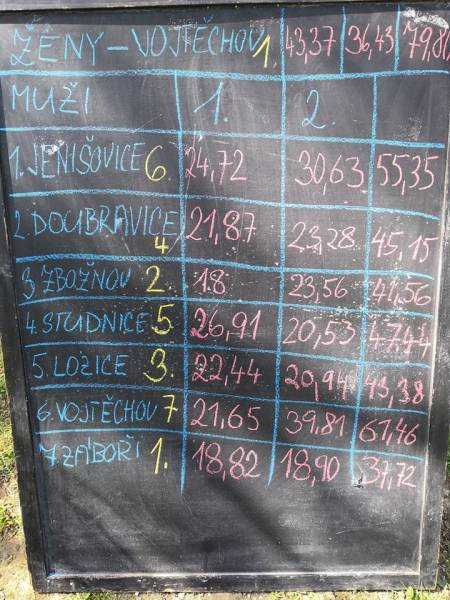 ŽENY - VOJTĚCHOV 1. 43,37 36,43 79,80
MUŽI 1. 2.
1. JENIŠOVICE 6. 24,72 30,63 55,35
2 DOUBRAVICE 4 21,87 23,28 45,15
3 ZBOŽNOV 2. 18 23,56 41,56
4. STUDNICE 5 26,91 20,53 47,44
5. LOZICE 3. 22,44 20,94 43,38
6. VOJTĚCHOV 7 21,65 39,81 61,46
7 ZÁBOŘÍ 1. 18,82 18,90 37,72